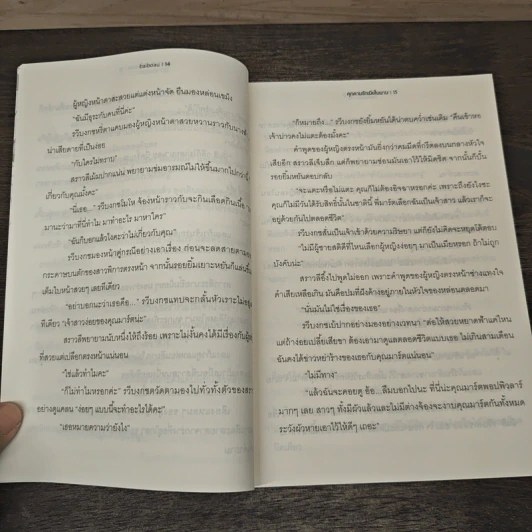 ใยไหม | 14
ผู้หญิงหน้าตาสะสวยแต่แต่งหน้าจัด ยืนมองหล่อนเขม็ง
"ฉันมีธุระกับคนที่นี่ค่ะ"
รวีบงกชหรี่ตาแคบมองผู้หญิงหน้าตาสวยหวานราวกับนาง
น่าเสียดายที่เป็นง่อย
"กับใครไม่ทราบ"
สราวลีเม้มปากแน่น พยายามข่มอารมณ์ไม่ให้ขึ้นมากไปกว่า
เกี่ยวกับคุณมั้งคะ"
"นี่เธอ..." รวีบงกชโมโห จ้องหน้าราวกับจะกินเลือดกินเนื้อ
มานะว่ามาที่นี่ทำไม มาทำอะไร มาหาใคร"
"ฉันก็บอกแล้วไงคะว่าไม่เกี่ยวกับคุณ"
รวีบงกชมองหน้าคู่กรณีอย่างเอาเรื่อง ก่อนจะลดสายตามา
กระดาษบนตักของสาวพิการตรงหน้า จากนั้นรอยยิ้มเยาะหยันก็แล่นขึ้น
เต็มใบหน้าสวยๆ เลยทีเดียว
"อย่าบอกนะว่าเธอคือ..." รวีบงกชแทบจะกลั้นหัวเราะไม่อยู่
ทีเดียว "เจ้าสาวง่อยของคุณมาร์คน่ะ"
สราวลีพยายามนับหนึ่งให้ถึงร้อย เพราะไม่งั้นคงได้มีเรื่องกับผู้
ที่สวยแต่เปลือกตรงหน้าแน่นอน
"ใช่แล้วทำไมคะ"
"ก็ไม่ทำไมหรอกค่ะ" รวีบงกชตวัดตามองไปทั่วทั้งตัวของสรา
อย่างดูแคลน "ง่อยๆ แบบนี้จะทำอะไรได้คะ"
"เธอหมายความว่ายังไง"
คุกตามรักมิเส้นนาย | 15
"ก็หมายถึง..." รวีบงกชยังยิ้มหยันได้น่าตบคว่ำเช่นเดิม "คืนเข้าหอ
เจ้าบ่าวคงไม่แตะต้องมั้งคะ"
คำพูดของผู้หญิงตรงหน้ามันยิ่งกว่าคมมีดที่กรีดลงบนกลางหัวใจ
เสียอีก สราวลีเจ็บลึก แต่ก็พยายามซ่อนมันเอาไว้ให้มิดชิด จากนั้นก็ปั้น
รอยยิ้มหยันตอบกลับ
"จะแตะหรือไม่แตะ คุณก็ไม่ต้องอิจฉาหรอกค่ะ เพราะถึงยังไงซะ
คุณก็ไม่มีวันได้รับสิทธิ์นั้นในชาตินี้ ที่มาร์คเลือกฉันเป็นเจ้าสาว แล้วเราก็จะ
อยู่ด้วยกันไปตลอดชีวิต"
รวีบงกชสั่นเป็นเจ้าเข้าด้วยความริษยา แต่ก็ยังไม่คิดจะหยุดโต้ตอบ
"ไม่มีผู้ชายสติดีที่ไหนเลือกผู้หญิงง่อยๆ มาเป็นเมียหรอก ถ้าไม่ถูก
บังคับน่ะ"
สราวลีอึ้งไปพูดไม่ออก เพราะคำพูดของผู้หญิงตรงหน้าช่างแทงใจ
ดำเสียเหลือเกิน มันคือปมที่ฝังค้างอยู่ภายในหัวใจของหล่อนตลอดมา
"นั่นมันไม่ใช่เรื่องของเธอ"
รวีบงกชเบ้ปากอย่างมองอย่างเวทนา "ต่อให้สวยหยาดฟ้าแค่ไหน
แต่ถ้าง่อยเปลี้ยเสียขา ต้องเอามาดูแลตลอดชีวิตแบบเธอ ไม่เกินสามเดือน
ฉันคงได้ข่าวหย่าร้างของเธอกับคุณมาร์คแน่นอน"
"ไม่มีทาง"
"แล้วฉันจะคอยดู อ้อ...ลืมบอกไปน่ะ ที่นี่น่ะคุณมาร์คพอปพิวลาร์
มากๆ เลย สาวๆ ทั้งมีผัวแล้วและไม่มีต่างจ้องจะงาบคุณมาร์คกันทั้งหมด
ระวังผัวหายเอาไว้ให้ดีๆ เถอะ"